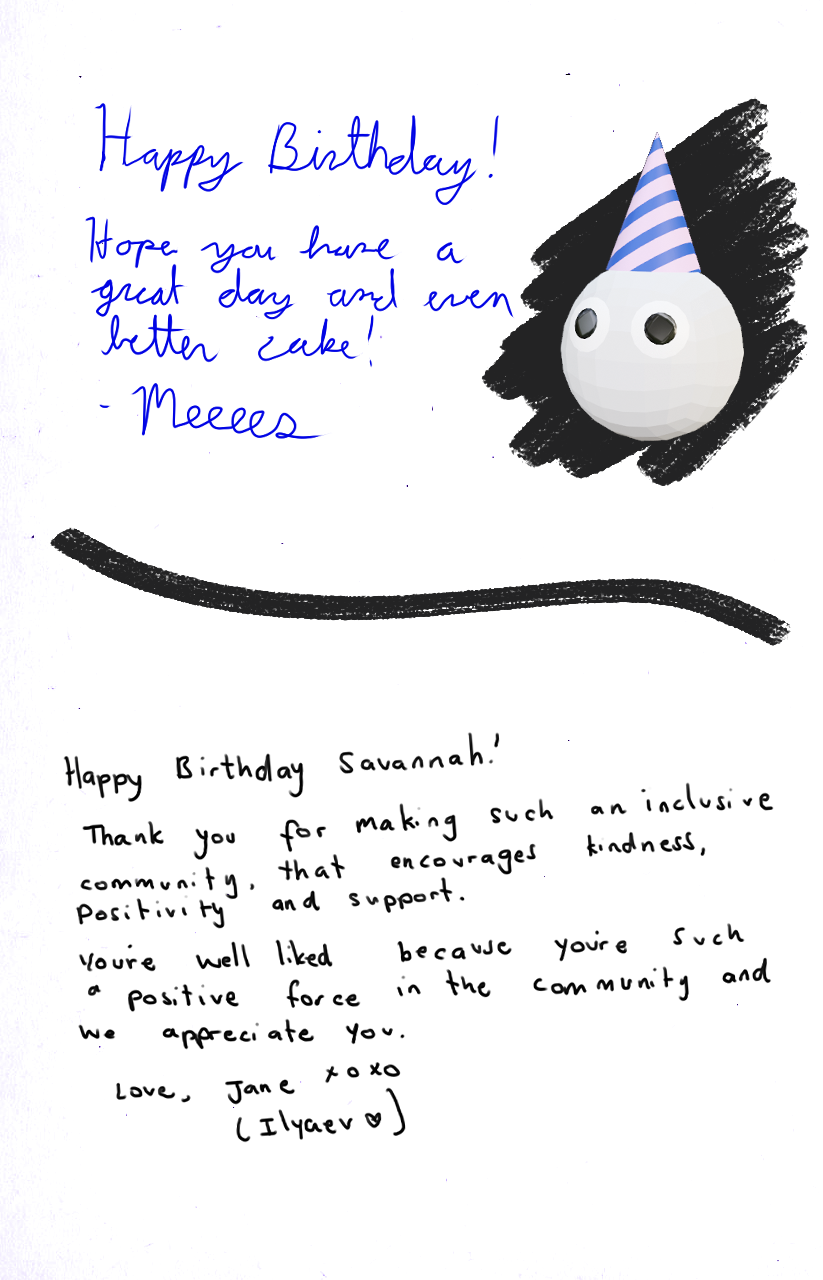 Happy Birthday!
Hope you have a
great day and even
better cake!
- Meeees
Happy Birthday Savannah!
Thank you for making such an inclusive
community, that encourages kindness,
Positivity and support.
You're well liked because you're such
a positive force in the community and
we appreciate you.
Love, Jane xoxo
(Ilyaev ♥)